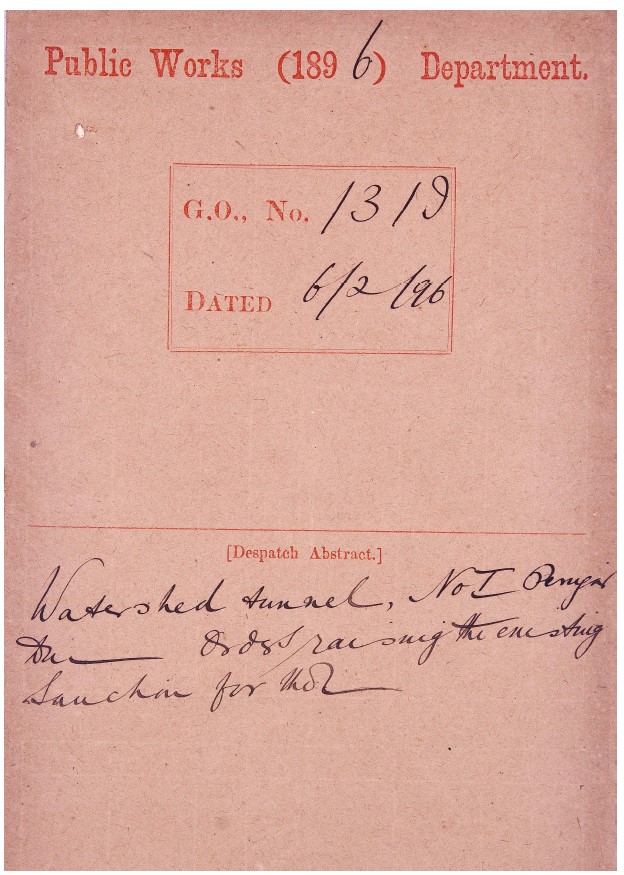 Public Works (1896) Department.
G.O., No. 131 D
DATED 6/2/96
[Despatch Abstract.]
Watershed tunnel, No I Periyar
Orders raising the existing
Sanction for the